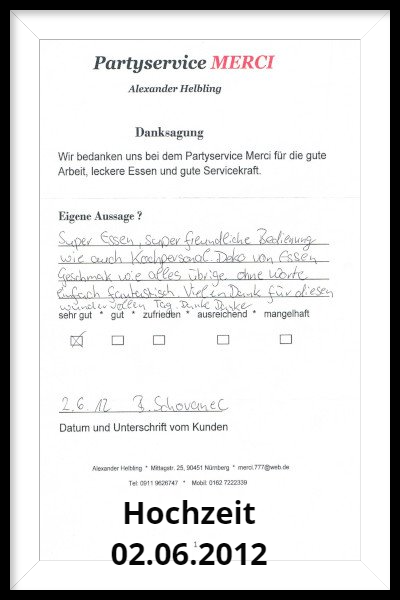 Partyservice MERCI
Alexander Helbling
Danksagung
Wir bedanken uns bei dem Partyservice Merci für die gute
Arbeit, leckere Essen und gute Servicekraft.
Eigene Aussage ?
Super Essen, super freundliche Bedienung
wie auch Kochpersonal. Deko von Essen
Geschmak wie alles übrige ohne Worte
einfach fantastisch Vielen Dank für diesen
wundervollen Tag. Danke Danke
sehr gut * gut * zufrieden * ausreichend * mangelhaft
2.6.12 B. Schovanec
Datum und Unterschrift vom Kunden
Alexander Helbling * Mittagstr. 25, 90451 Nürnberg * merci.777@web.de
Tel: 0911 9626747 * Mobil: 0162 7222339
1
Hochzeit
02.06.2012